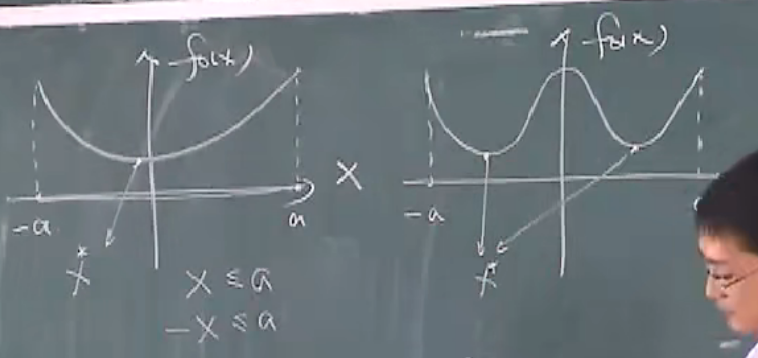 f₀(x)
-a
a
x
x*
x ≤ a
-x ≤ a
f₀(x)
-a
x*